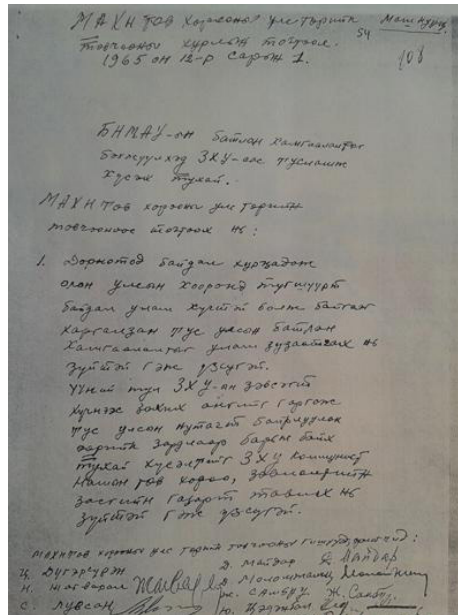 МАХН Төв Хорооны улс төрийн Маш нууц
товчооны хурлын тогтоол. 54
1965 он 12-р сарын 1. 108
БНМАУ-ын батлан хамгаалалтыг
бэхжүүлэхэд ЗХУ-аас тусламж
хүсэх тухай.
МАХН Төв хорооны улс төрийн
товчооноос тогтоох нь:
1. Дорнотод байдал хурцадаж
олон улсын хооронд түгшүүрт
байдал улам хүчтэй болж байгааг
харгалзан тус улсын батлан
хамгаалалтыг улам зузаатгах нь
зүйтэй гэж үзсүгэй.
Үүний тул ЗХУ-ын зэвсэгт
хүчнээс зохих ангийг гаргаж
тус улсын нутагт байрлуулах
зардлаар барьж байх
тухай хүсэлтийг ЗХУ коммунист
намын төв хороо,
засгийн газарт тавих нь
зүйтэй гэж үзсүгэй.
МАХН төв хорооны улс төрийн товчооны гишүүд,
Ц. Дүгэрсүрэн Д. Майдар Д. Майдар
Н. Жагварал Жагварал Д. Моломжамц
С. Лувсан Ж. Самбуу Ж. Самбуу
Ю. Цэдэнбал